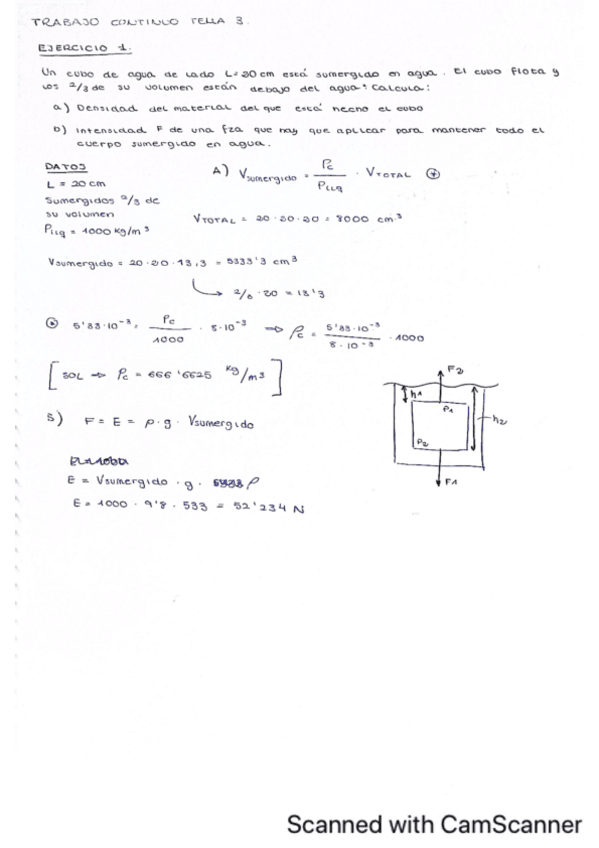 TRABAJO CONTINUO TEMA 3.
EJERCICIO 1.
Un cubo de agua de lado L=20 cm está sumergido en agua. El cubo flota y
los 2/3 de su volumen están debajo del agua; Calcula:
a) Densidad del material del que está hecho el cubo
b) Intensidad F de una fza que hay que aplicar para mantener todo el
cuerpo sumergido en agua.
DATOS
L = 20 cm
Sumergidos 2/3 de
su volumen
Pliq = 1000 Kg/m³
A) Vsumergido = Pc / PLiq · VTOTAL *
VTOTAL = 20 · 20 · 20 = 8000 cm³
Vsumergido = 20 · 20 · 13,3 = 5333'3 cm³
· 20 = 13'3
* 5'33·10⁻³ = Pc / 1000 · 8·10⁻³ ⇒ Pc = 5'33·10⁻³ / 8·10⁻³ · 1000
[SOL ⇒ Pc = 666'6625 Kg/m³]
B) F = E = ρ · g · Vsumergido
E = Vsumergido · g · ρ
E = 1000 · 9'8 · 533 = 52'234 N
F2
h1
P1
h2
P2
F1
Scanned with CamScanner